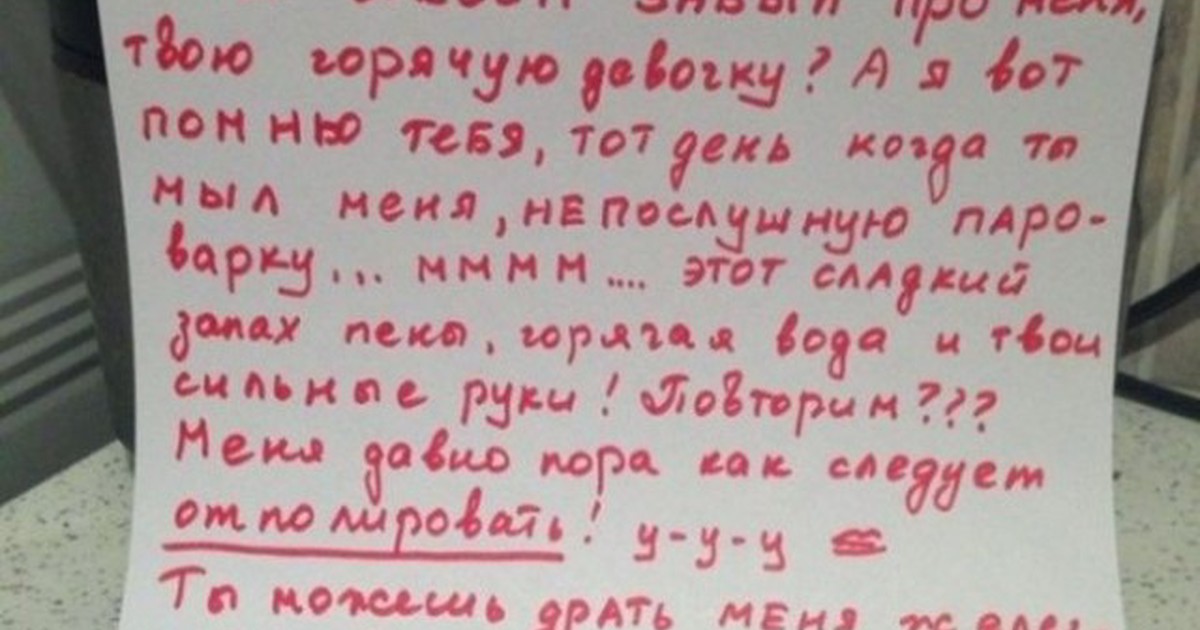 забыл про меня,
твою горячую девочку? А я вот
помню тебя, тот день когда ты
мыл меня, непослушную паро-
варку... мммм.... этот сладкий
запах пены, горячая вода и твои
сильные руки! Повторим???
Меня давно пора как следует
отполировать! у-у-у
Ты можешь драть меня